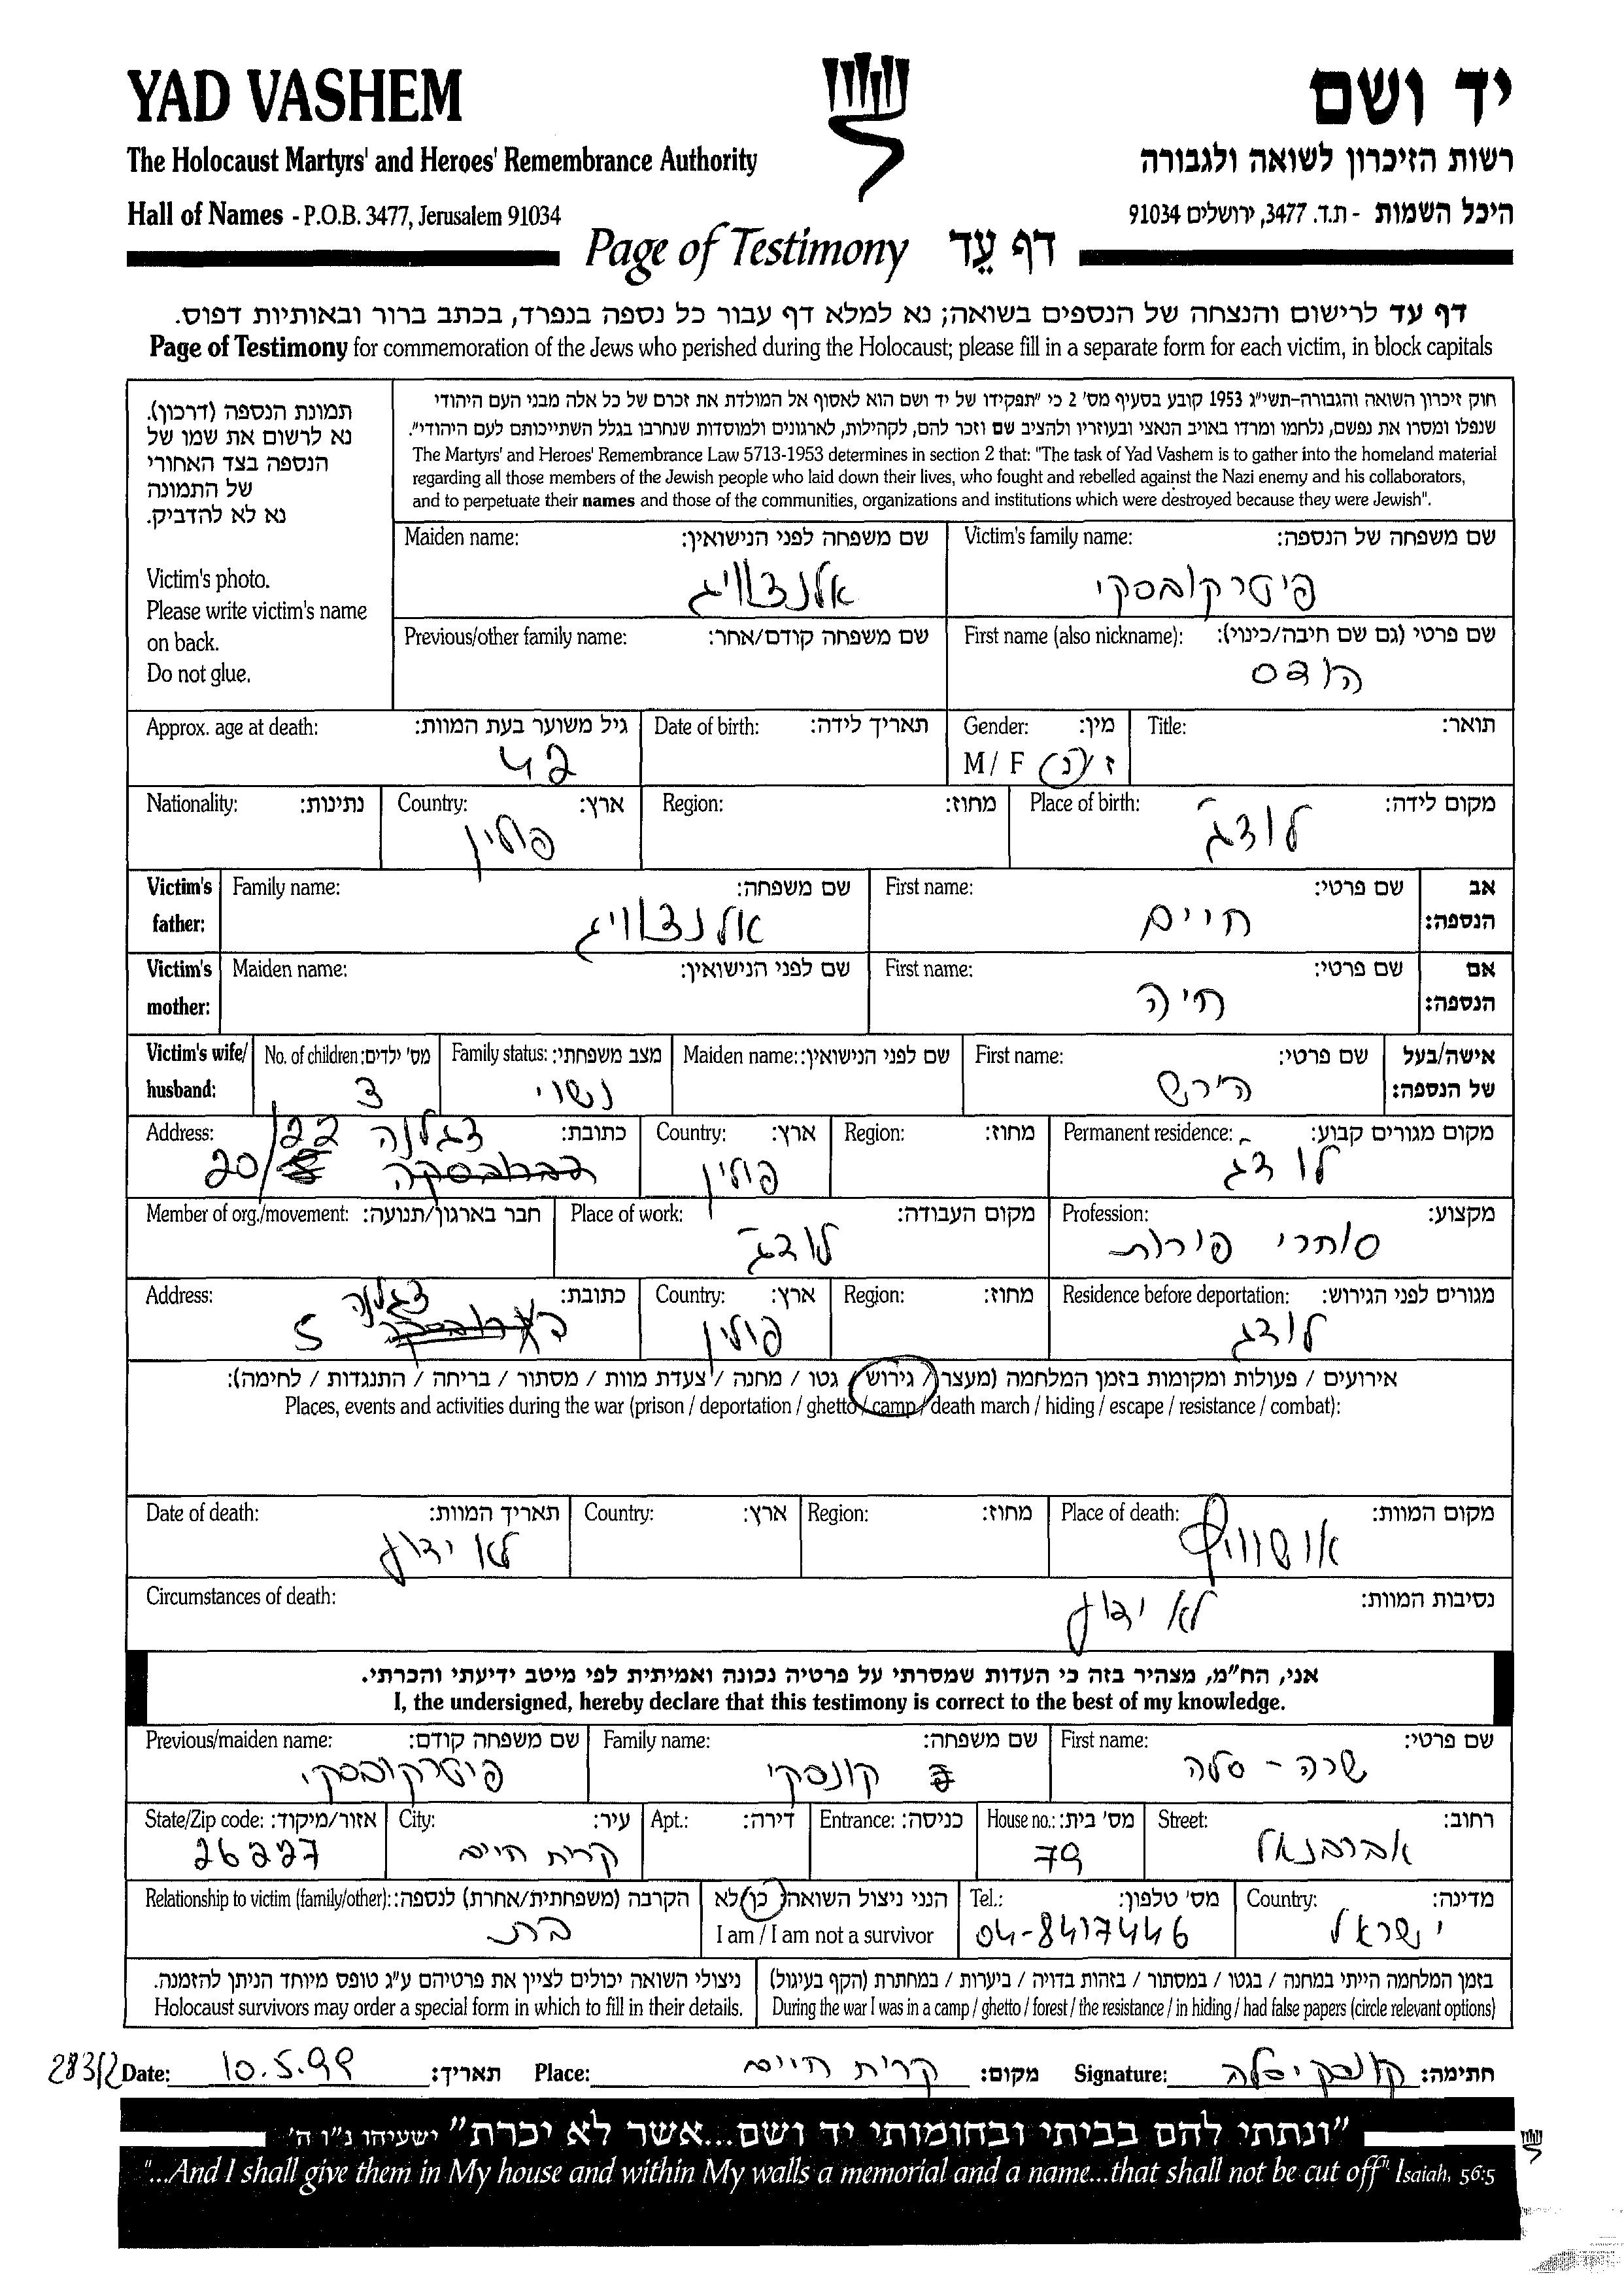 YAD VASHEM
יד ושם
The Holocaust Martyrs' and Heroes' Remembrance Authority
רשות הזיכרון לשואה ולגבורה
Hall of Names - P.O.B. 3477, Jerusalem 91034
היכל השמות - ת.ד. 3477, ירושלים 91034
Page of Testimony דף עֵד
דף עד לרישום והנצחה של הנספים בשואה; נא למלא דף עבור כל נספה בנפרד, בכתב ברור ובאותיות דפוס.
Page of Testimony for commemoration of the Jews who perished during the Holocaust; please fill in a separate form for each victim, in block capitals
תמונת הנספה (דרכון).
נא לרשום את שמו של
הנספה בצד האחורי
של התמונה
נא לא להדביק.
Victim's photo.
Please write victim's name
on back.
Do not glue.
חוק זיכרון השואה והגבורה-תשי"ג 1953 קובע בסעיף מס' 2 כי "תפקידו של יד ושם הוא לאסוף אל המולדת את זכרם של כל אלה מבני העם היהודי
שנפלו ומסרו את נפשם, נלחמו ומרדו באויב הנאצי ובעוזריו ולהציב שם וזכר להם, לקהילות, לארגונים ולמוסדות שנחרבו בגלל השתייכותם לעם היהודי".
The Martyrs' and Heroes' Remembrance Law 5713-1953 determines in section 2 that: "The task of Yad Vashem is to gather into the homeland material
regarding all those members of the Jewish people who laid down their lives, who fought and rebelled against the Nazi enemy and his collaborators,
and to perpetuate their names and those of the communities, organizations and institutions which were destroyed because they were Jewish".
Victim's family name: שם משפחה של הנספה:
פיטרקובסקי
Maiden name: שם משפחה לפני הנישואין:
אלנצוויג
First name (also nickname): שם פרטי (גם שם חיבה/כינוי):
הודס
Previous/other family name: שם משפחה קודם/אחר:
Title: תואר:
Gender: מין:
M / F ז / נ
Date of birth: תאריך לידה:
Approx. age at death: גיל משוער בעת המוות:
42
Place of birth: מקום לידה:
לודג'
Region: מחוז:
Country: ארץ:
פולין
Nationality: נתינות:
Victim's father: אב הנספה:
First name: שם פרטי:
חיים
Family name: שם משפחה:
אלנצוויג
Victim's mother: אם הנספה:
First name: שם פרטי:
חיה
Maiden name: שם לפני הנישואין:
Victim's wife/ husband: אישה/בעל של הנספה:
First name: שם פרטי:
הירש
Maiden name: שם לפני הנישואין:
Family status: מצב משפחתי:
נשוי
No. of children: מס' ילדים:
3
Permanent residence: מקום מגורים קבוע:
לודג'
Region: מחוז:
Country: ארץ:
פולין
Address: כתובת:
צגלנה 22
20/
Profession: מקצוע:
סוחרי פירות
Place of work: מקום העבודה:
לודג'
Member of org./movement: חבר בארגון/תנועה:
Residence before deportation: מגורים לפני הגירוש:
לודג'
Region: מחוז:
Country: ארץ:
פולין
Address: כתובת:
צגלנה
5
אירועים / פעולות ומקומות בזמן המלחמה (מעצר / גירוש / גטו / מחנה / צעדת מוות / מסתור / בריחה / התנגדות / לחימה):
Places, events and activities during the war (prison / deportation / ghetto / camp / death march / hiding / escape / resistance / combat):
Place of death: מקום המוות:
אושוויץ
Region: מחוז:
Country: ארץ:
Date of death: תאריך המוות:
לא ידוע
Circumstances of death: נסיבות המוות:
לא ידוע
אני, הח"מ, מצהיר בזה כי העדות שמסרתי על פרטיה נכונה ואמיתית לפי מיטב ידיעתי והכרתי.
I, the undersigned, hereby declare that this testimony is correct to the best of my knowledge.
First name: שם פרטי:
שרה - סלה
Family name: שם משפחה:
קונסקי
Previous/maiden name: שם משפחה קודם:
פיטרקובסקי
Street: רחוב:
אברבנאל
House no.: מס' בית:
79
Entrance: כניסה:
Apt.: דירה:
City: עיר:
קרית חיים
State/Zip code: אזור/מיקוד:
26227
Country: מדינה:
ישראל
Tel.: מס' טלפון:
04-8417446
הנני ניצול השואה: כן/לא
I am / I am not a survivor
Relationship to victim (family/other): הקרבה (משפחתית/אחרת) לנספה:
בת
בזמן המלחמה הייתי במחנה / בגטו / במסתור / בזהות בדויה / ביערות / במחתרת (הקף בעיגול)
During the war I was in a camp / ghetto / forest / the resistance / in hiding / had false papers (circle relevant options)
ניצולי השואה יכולים לציין את פרטיהם ע"ג טופס מיוחד הניתן להזמנה.
Holocaust survivors may order a special form in which to fill in their details.
283/2 Date: 10.5.99 תאריך:
Place: קרית חיים מקום:
Signature: קונסקי סלה חתימה:
"ונתתי להם בביתי ובחומותי יד ושם...אשר לא יכרת" ישעיהו נ"ו ה'
"...And I shall give them in My house and within My walls a memorial and a name...that shall not be cut off" Isaiah, 56:5